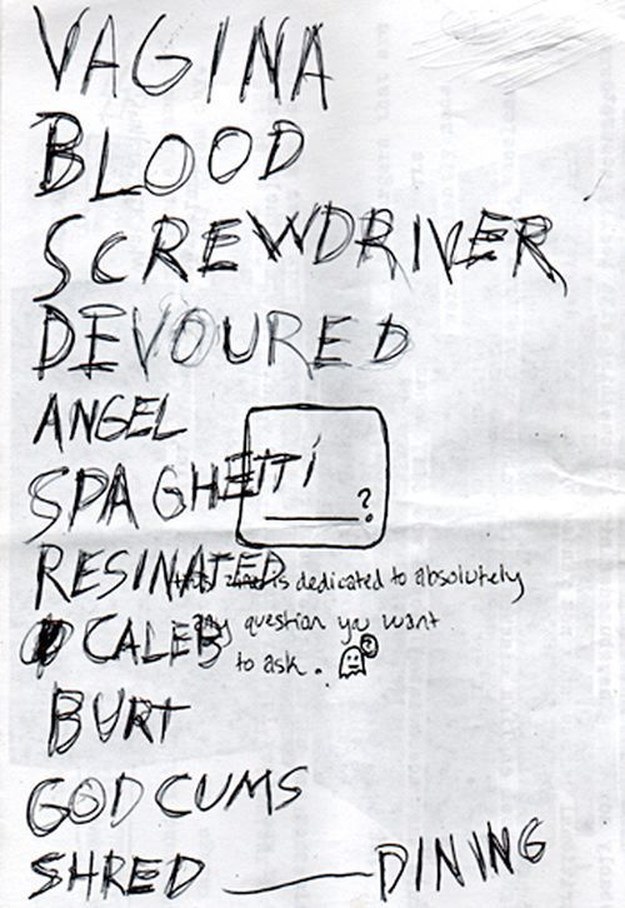 VAGINA
BLOOD
SCREWDRIVER
DEVOURED
ANGEL
SPAGHETTi
?
RESINATED
this zine is dedicated to absolutely
CALEB
any question you want
to ask.
BURT
GOD CUMS
SHRED ——— DINING